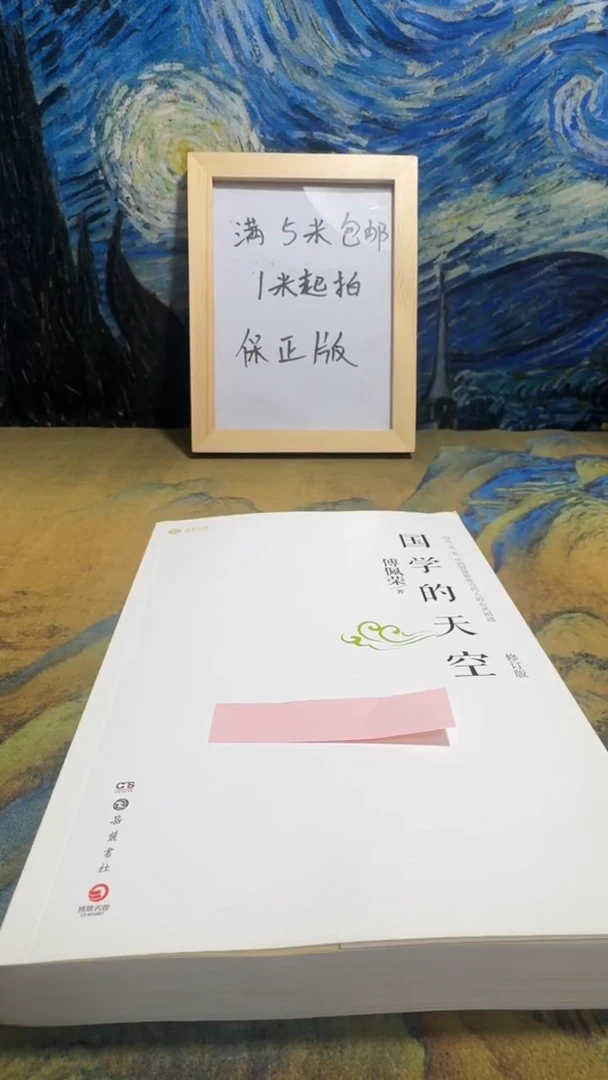 满5米包邮
1米起拍
保正版
国学的天空
傅佩荣 著
修订版
岳麓书社
博集天卷
CS-BOOKY